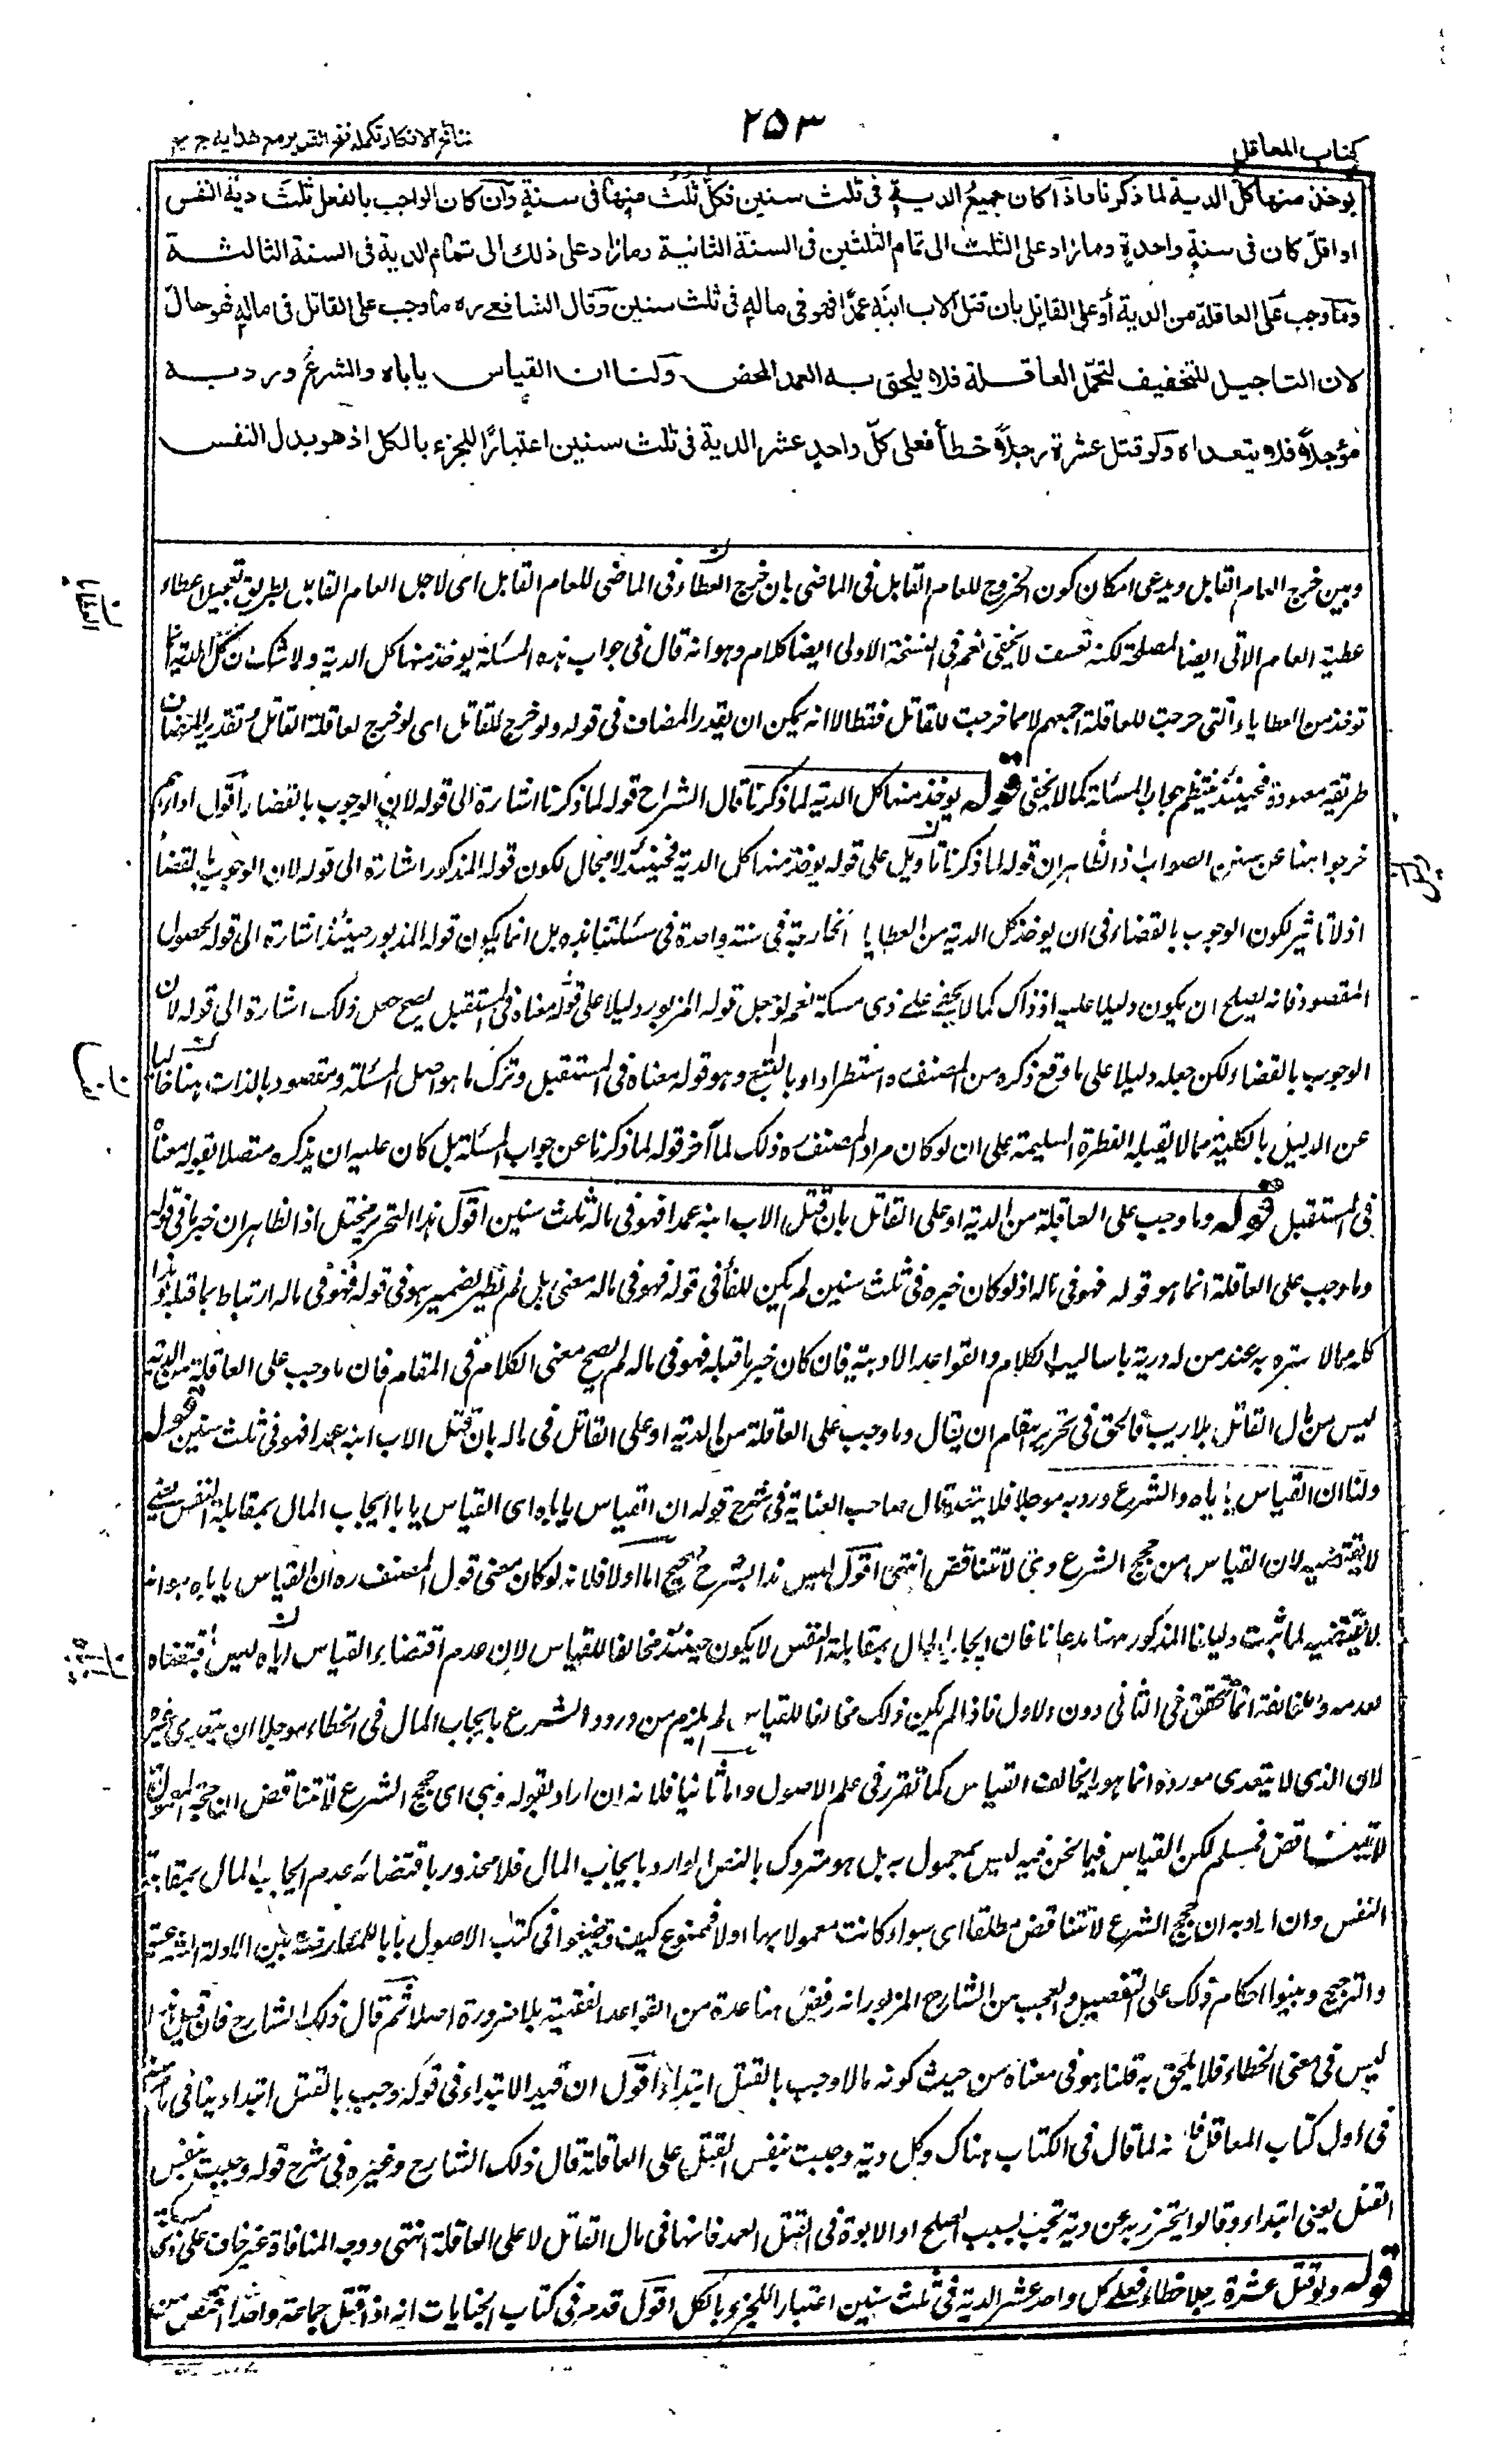 كتاب المعاقل
٢٥٣
نتائج الافكار تكملة فتح القدير مع هدايه ج ٤
يوخذ منها كل الدية لما ذكرنا واذا كان جميع الدية فى ثلث سنين فكل ثلث منها فى سنة وان كان الواجب بالفعل ثلث دية النفس
او اقل كان فى سنة واحدة وما زاد على الثلث الى تمام الثلثين فى السنة الثانية وما زاد على ذلك الى تمام الدية فى السنة الثالثة
وما وجب على العاقلة من الدية أو على القاتل بان قتل الاب ابنه عمدا فهو فى ماله فى ثلث سنين وقال الشافعى ره ما وجب على القاتل فى ماله فهو حال
لان التاجيل للتخفيف لتحمل العاقلة فلا يلحق به العمد المحض ولنا ان القياس ياباه والشرع ورد به
مؤجلا فلا يتعداه ولو قتل عشرة رجلا خطأ فعلى كل واحد عشر الدية فى ثلث سنين اعتبارا للجزء بالكل اذ هو بدل النفس
وبين خرج العام القابل ويدعى امكان كون الخروج للعام القابل فى الماضى بان خرج العطاء فى الماضى للعام القابل اى لاجل العام القابل بطريق تعجيل اعطاء
عطية العام الاتى ايضا لمصلحة لكنه تعسف لا يخفى نعم فى النسخة الاولى ايضا كلام وهو انه قال فى جواب هذه المسئلة يوخذ منها كل الدية ولا شك ان كل الدية انما
توخذ من العطايا التى خرجت للعاقلة اجمعهم لا مما خرجت للقاتل فقط الا انه يمكن ان يقدر المضاف فى قوله ولو خرج للقاتل اى لو خرج لعاقلة القاتل وتقدير المضاف
طريقة معهودة فحينئذ ينتظم جواب المسئلة كما لا يخفى قوله يوخذ منها كل الدية لما ذكرنا قال الشراح قوله لما ذكرنا اشارة الى قوله لان الوجوب بالقضاء أقول اراهم
خرجوا ههنا عن سنن الصواب اذ الظاهر ان قوله لما ذكرنا تاويل على قوله يوخذ منها كل الدية فحينئذ لا مجال لكون قوله المذكور اشارة الى قوله لان الوجوب بالقضاء
اذ لا تاثير لكون الوجوب بالقضاء فى ان يوخذ كل الدية من العطايا الخارجة فى سنة واحدة فى مسئلتنا هذه بل انما يكون قوله المزبور حينئذ اشارة الى قوله لحصول
المقصود فانه يصلح ان يكون دليلا عليه اذ ذاك كما لا يخفى على ذى مسكة نعم لو جعل قوله المزبور دليلا على قوله معناه فى المستقبل يصح جعل ذلك اشارة الى قوله لان
الوجوب بالقضاء ولكن جعله دليلا على ما وقع ذكره من المصنف ره استطرادا وبالتبع وهو قوله معناه فى المستقبل وترك ما هو اصل المسئلة ومقصود بالذات ههنا خاليا
عن الدليل بالكلية مما لا يقبله الفطرة السليمة على ان لو كان مراد المصنف ره ذلك لما آخر قوله لما ذكرنا عن جواب المسئلة بل كان عليه ان يذكره متصلا بقوله معناه
فى المستقبل قوله وما وجب على العاقلة من الدية او على القاتل بان قتل الاب ابنه عمدا فهو فى ماله ثلث سنين اقول هذا التحرير مختل اذ الظاهر ان خبر ما فى قوله
وما وجب على العاقلة انما هو قوله فهو فى ماله اذ لو كان خبره فى ثلث سنين لم يكن للفأ فى قوله فهو فى ماله معنى بل لم يظهر لضمير هو فى قوله فهو فى ماله ارتباط بما قبله وهذا
كله مما لا سترة به عند من له دربة باساليب الكلام والقواعد الادبية فان كان خبر ما قبله فهو فى ماله لم يصح معنى الكلام فى المقام فان ما وجب على العاقلة من الدية
ليس من مال القاتل بلا ريب فالحق فى تحرير المقام ان يقال وما وجب على العاقلة من الدية او على القاتل فى ماله بان قتل الاب ابنه عمدا فهو فى ثلث سنين قوله
ولنا ان القياس ياباه والشرع ورد به موجلا فلا يتعداه قال صاحب العناية فى شرح قوله ان القياس ياباه اى القياس يابا ايجاب المال بمقابلة النفس يعنى
لا يقتضيه لان القياس من حجج الشرع وهى لا تتناقض انتهى اقول ليس هذا بشرح صحيح اما اولا فلانه لو كان معنى قول المصنف ره ان القياس ياباه هو انه
لا يقتضيه لما ثبت دليلنا المذكور ههنا مدعانا فان ايجاب المال بمقابلة النفس لا يكون حينئذ مخالفا للقياس لان عدم اقتضاء القياس اياه ليس بمقتضاه
عدمه والمخالفة انما تتحقق فى الثانى دون الاول فاذا لم يكن ذلك مخالفا للقياس لم يلزم من ورود الشرع بايجاب المال فى الخطاء موجلا ان يتعدى غيره
لان الذى لا يتعدى مورده انما هو ما يخالف القياس كما تقرر فى علم الاصول واما ثانيا فلانه ان اراد بقوله وهى اى حجج الشرع لا تتناقض ان حجته المعمولة
لا تتناقض فمسلم لكن القياس فيما نحن فيه ليس بمعمول به بل هو متروك بالنص الوارد بايجاب المال فلا محذور باقتضائه عدم ايجاب المال بمقابلة
النفس وان اراد به ان حجج الشرع لا تتناقض مطلقا اى سواء كانت معمولا بها اولا فممنوع كيف وقد وضعوا فى كتب الاصول بابا للمعارضة بين الادلة الشرعية
والترجيح وبينوا احكام ذلك على التفصيل والعجب من الشارح المزبور انه رفض ههنا عدة من القواعد الفقهية بلا ضرورة اصلا ثم قال ذلك الشارح فان قيل هذا
ليس فى معنى الخطاء فلا يلحق به قلنا هو فى معناه من حيث كونه مالا وجب بالقتل ابتداء أقول ان قيد الابتداء فى قوله وجب بالقتل ابتداء ينافى ما سبق
فى اول كتاب المعاقل فانه لما قال فى الكتاب هناك وكل دية وجبت بنفس القتل على العاقلة قال ذلك الشارح وغيره فى شرح قوله وجبت بنفس
القتل يعنى ابتداء وقالوا يحترز به عن دية تجب بسبب الصلح او الابوة فى القتل العمد فانها فى مال القاتل لا على العاقلة انتهى ووجه المنافاة غير خاف على ذى مسكة
قوله ولو قتل عشرة رجلا خطاء فعلى كل واحد عشر الدية فى ثلث سنين اعتبارا للجزء بالكل اقول قد مر فى كتاب الجنايات انه اذا قتل جماعة واحدا اقتص